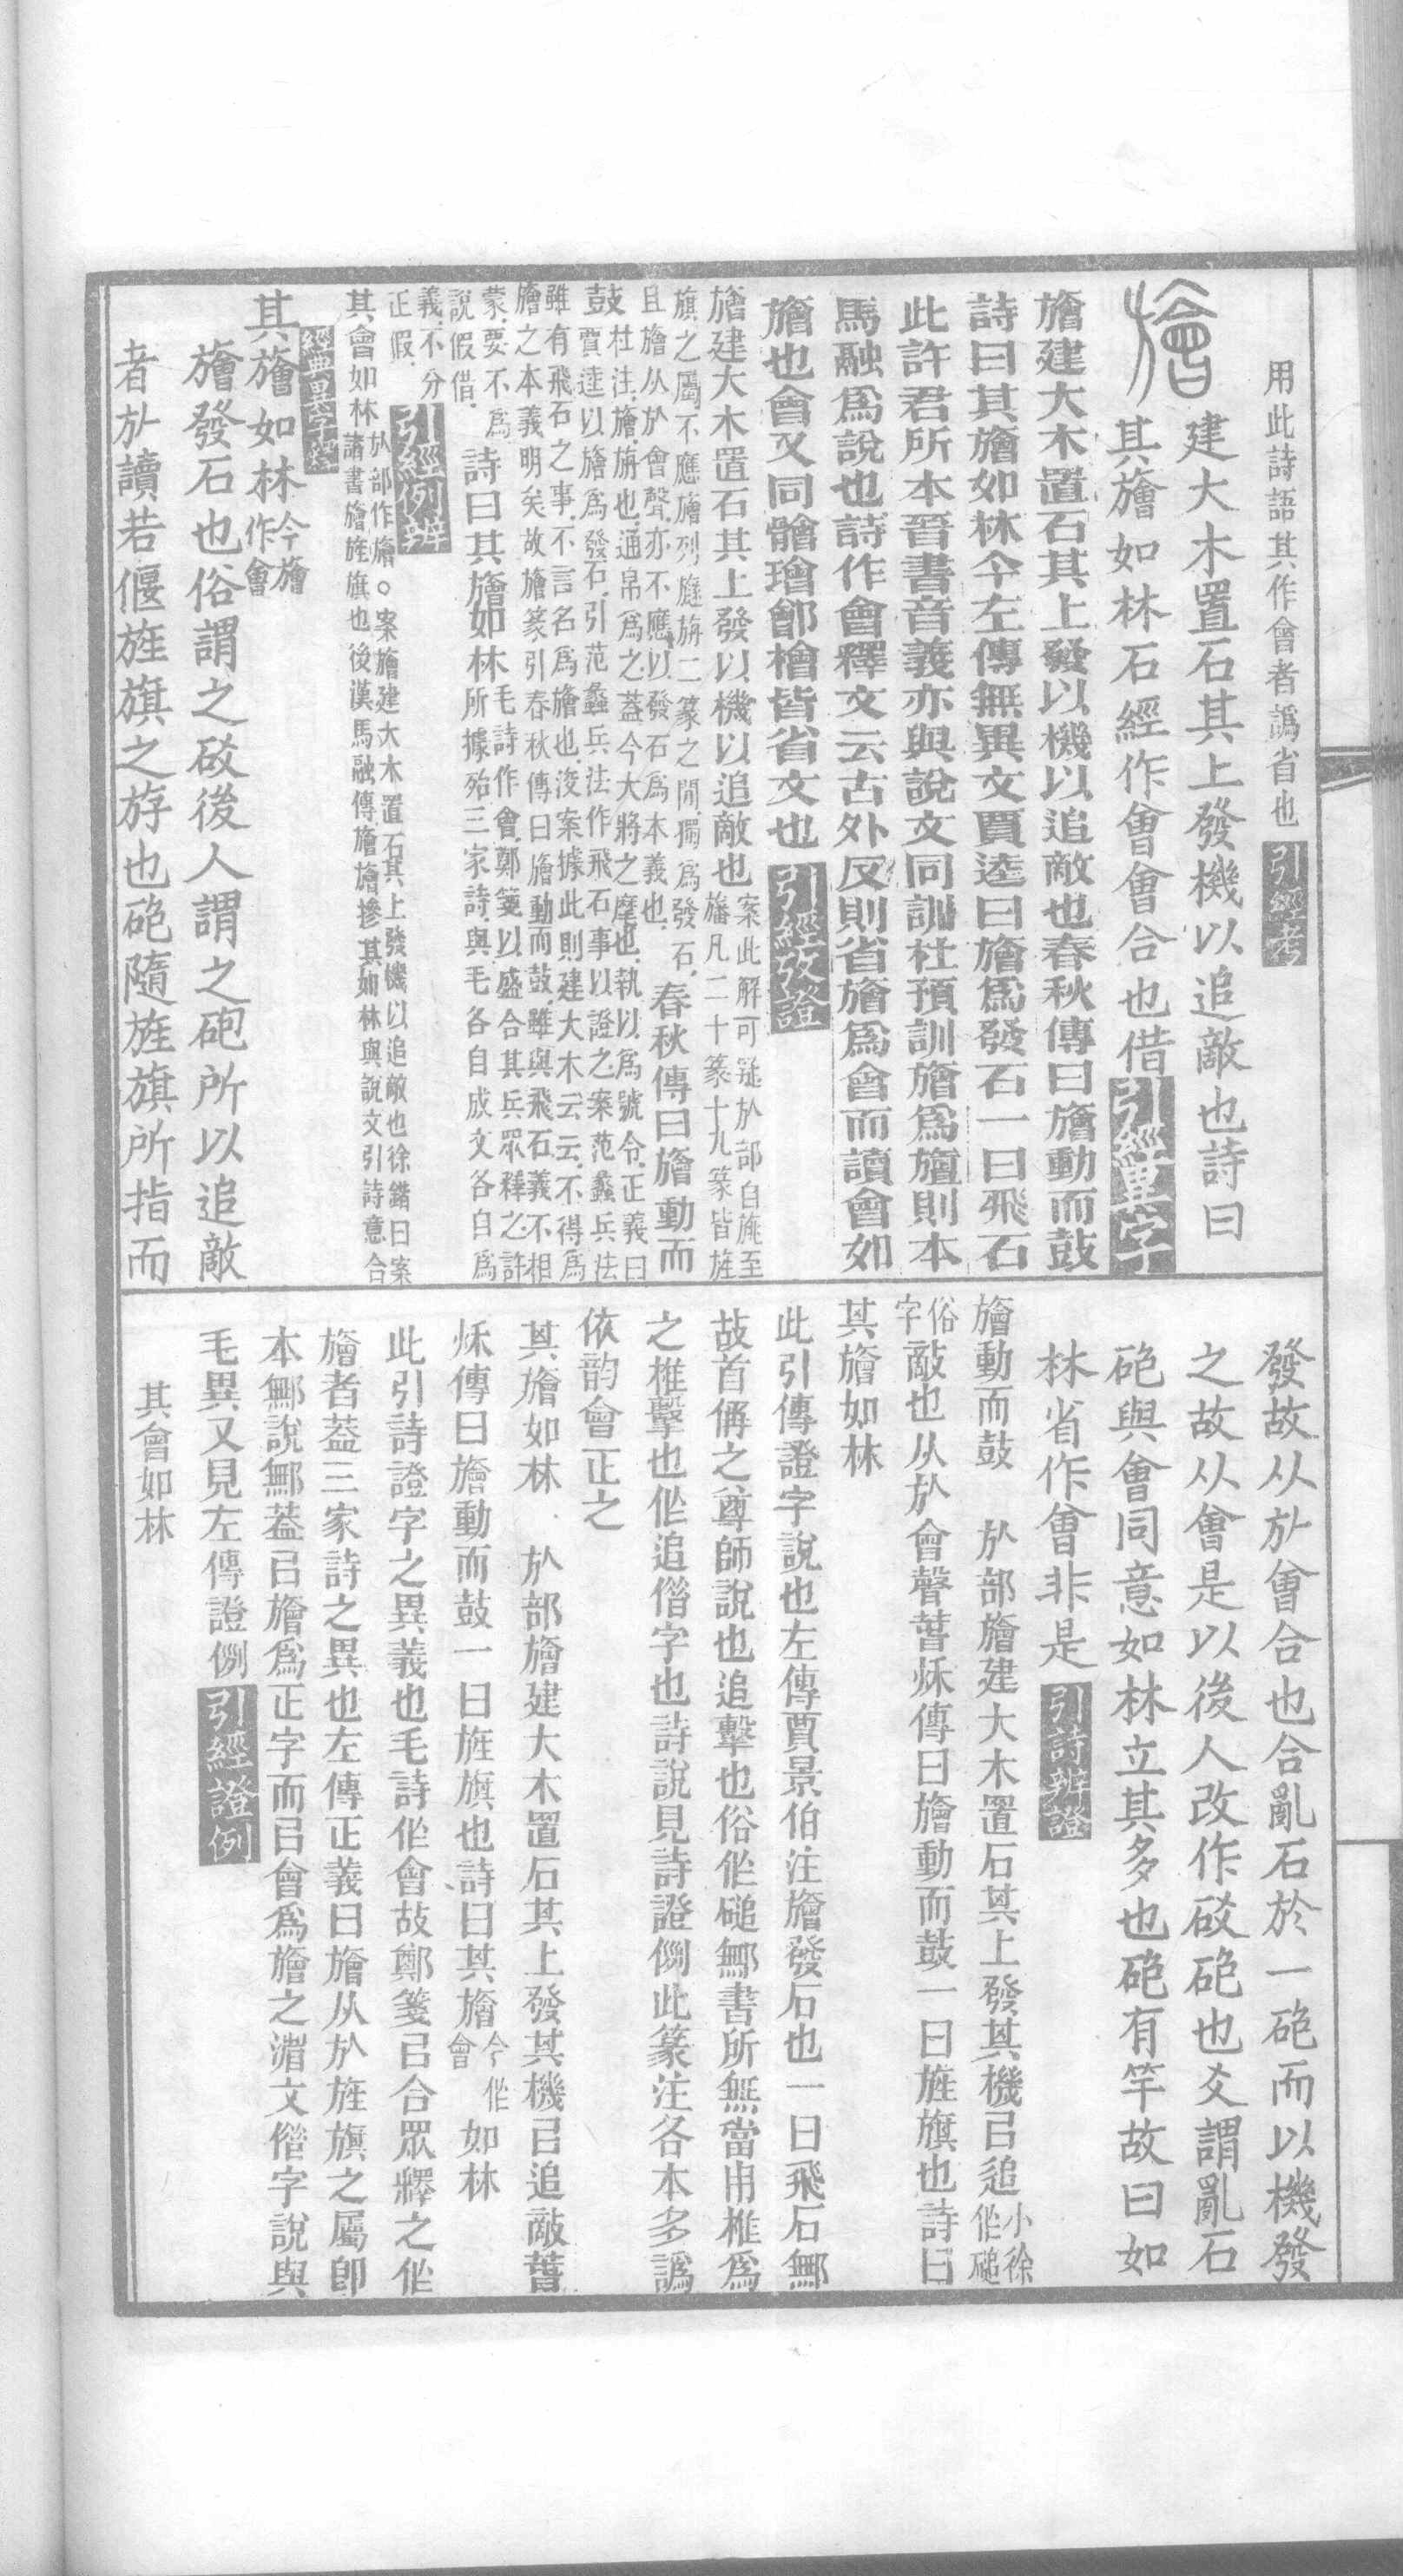 用此詩語其作會者譌省也引經考
建大木置石其上發機以追敵也詩曰
其旝如林石經作會會合也借引經異字
旝建大木置石其上發以機以追敵也春秋傳曰旝動而鼓
詩曰其旝如林今左傳無異文賈逵曰旝爲發石一曰飛石
此許君所本晉書音義亦與說文同訓杜預訓旝爲旜則本
馬融爲說也詩作會釋文云古外反則省旝爲會而讀會如
旝也會又同䯤璯鄶檜皆省文也引經攷證
旝建大木置石其上發以機以追敵也
案此解可疑㫃部自旐至
旛凡二十篆十九篆皆旌
旗之屬不應旝列旞旃二篆之閒獨爲發石
且旝从㫃會聲亦不應以發石爲本義也
春秋傳曰旝動而
鼓
杜注旝旃也通帛爲之蓋今大將之麾也執以爲號令正義曰
賈逵以旝爲發石引范蠡兵法作飛石事以證之案范蠡兵法
雖有飛石之事不言名爲旝也浚案據此則建大木云云不得爲
旝之本義明矣故旝篆引春秋傳曰旝動而鼓雖與飛石義不相
蒙要不爲
說假借
詩曰其旝如林
毛詩作會鄭箋以盛合其兵眾釋之許
所據殆三家詩與毛各自成文各自爲
義不分
正假
引經例辨
其會如林
㫃部作旝○案旝建大木置石其上發機以追敵也徐鍇曰案
諸書旝旌旗也後漢馬融傳旝旝摻其如林與說文引詩意合
經典異字䆁
其旝如林
今旝
作會
旝發石也俗謂之砇後人謂之砲所以追敵
者㫃讀若偃旌旗之斿也砲隨旌旗所指而
發故从㫃會合也合亂石於一砲而以機發
之故从會是以後人改作砇砲也爻謂亂石
砲與會同意如林立其多也砲有竿故曰如
林省作會非是引詩辨證
旝動而鼓　㫃部旝建大木置石其上發其機㠯追
小徐
作磓
俗
字
敵也从㫃會聲萅秌傳曰旝動而鼓一曰旌旗也詩曰
其旝如林
此引傳證字說也左傳賈景伯注旝發石也一曰飛石鄦
故首偁之尊師說也追擊也俗作磓鄦書所無當用椎爲
之椎擊也作追偕字也詩說見詩證例此篆注各本多譌
依韵會正之
其旝如林　㫃部旝建大木置石其上發其機㠯追敵萅
秌傳曰旝動而鼓一曰旌旗也詩曰其旝
今作
會
如林
此引詩證字之異義也毛詩作會故鄭箋㠯合眾釋之作
旝者蓋三家詩之異也左傳正義曰旝从㫃旌旗之屬卽
本鄦說鄦蓋㠯旝爲正字而㠯會爲旝之渻文偕字說與
毛異又見左傳證例引經證例
其會如林